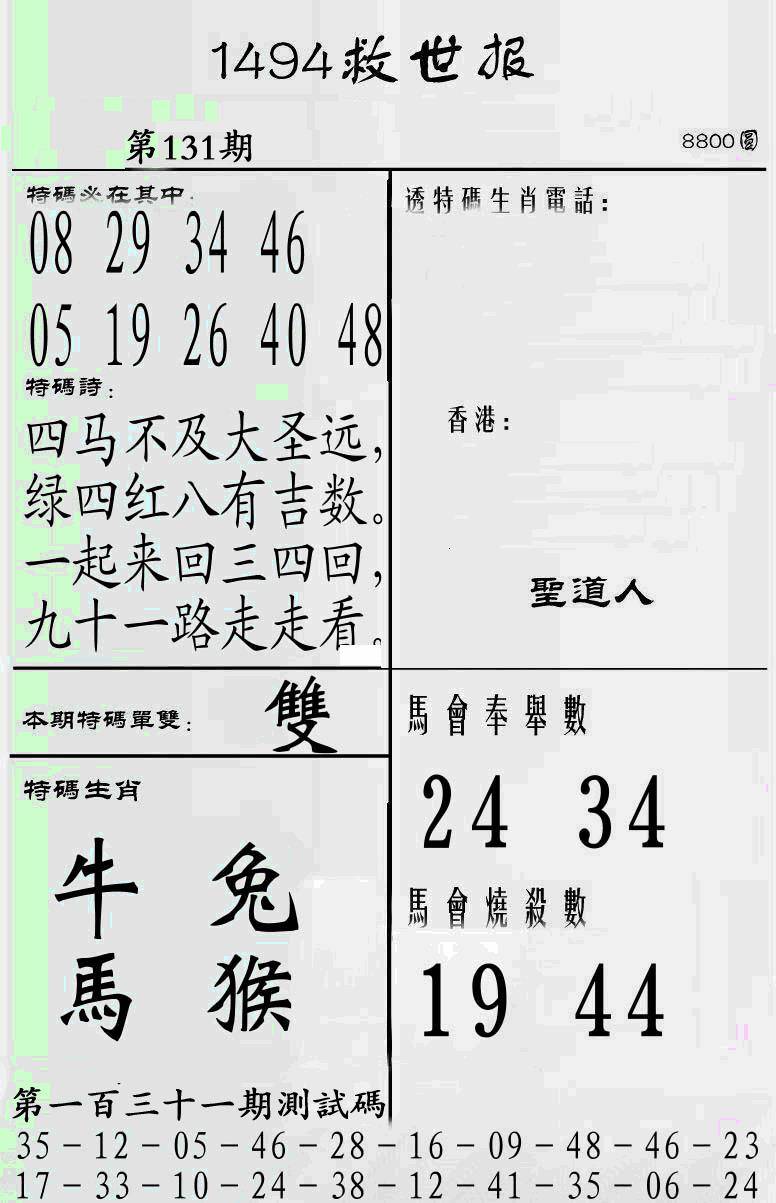 1494救世报
第131期
8800圓
特碼必在其中:
08 29 34 46
05 19 26 40 48
特碼詩:
四马不及大圣远,
绿四红八有吉数。
一起来回三四回,
九十一路走走看。
透特碼生肖電話:
香港:
聖道人
本期特碼單雙:
雙
特碼生肖
牛 兔
馬 猴
馬會奉舉數
24 34
馬會燒殺數
19 44
第一百三十一期測試碼
35-12-05-46-28-16-09-48-46-23
17-33-10-24-38-12-41-35-06-24